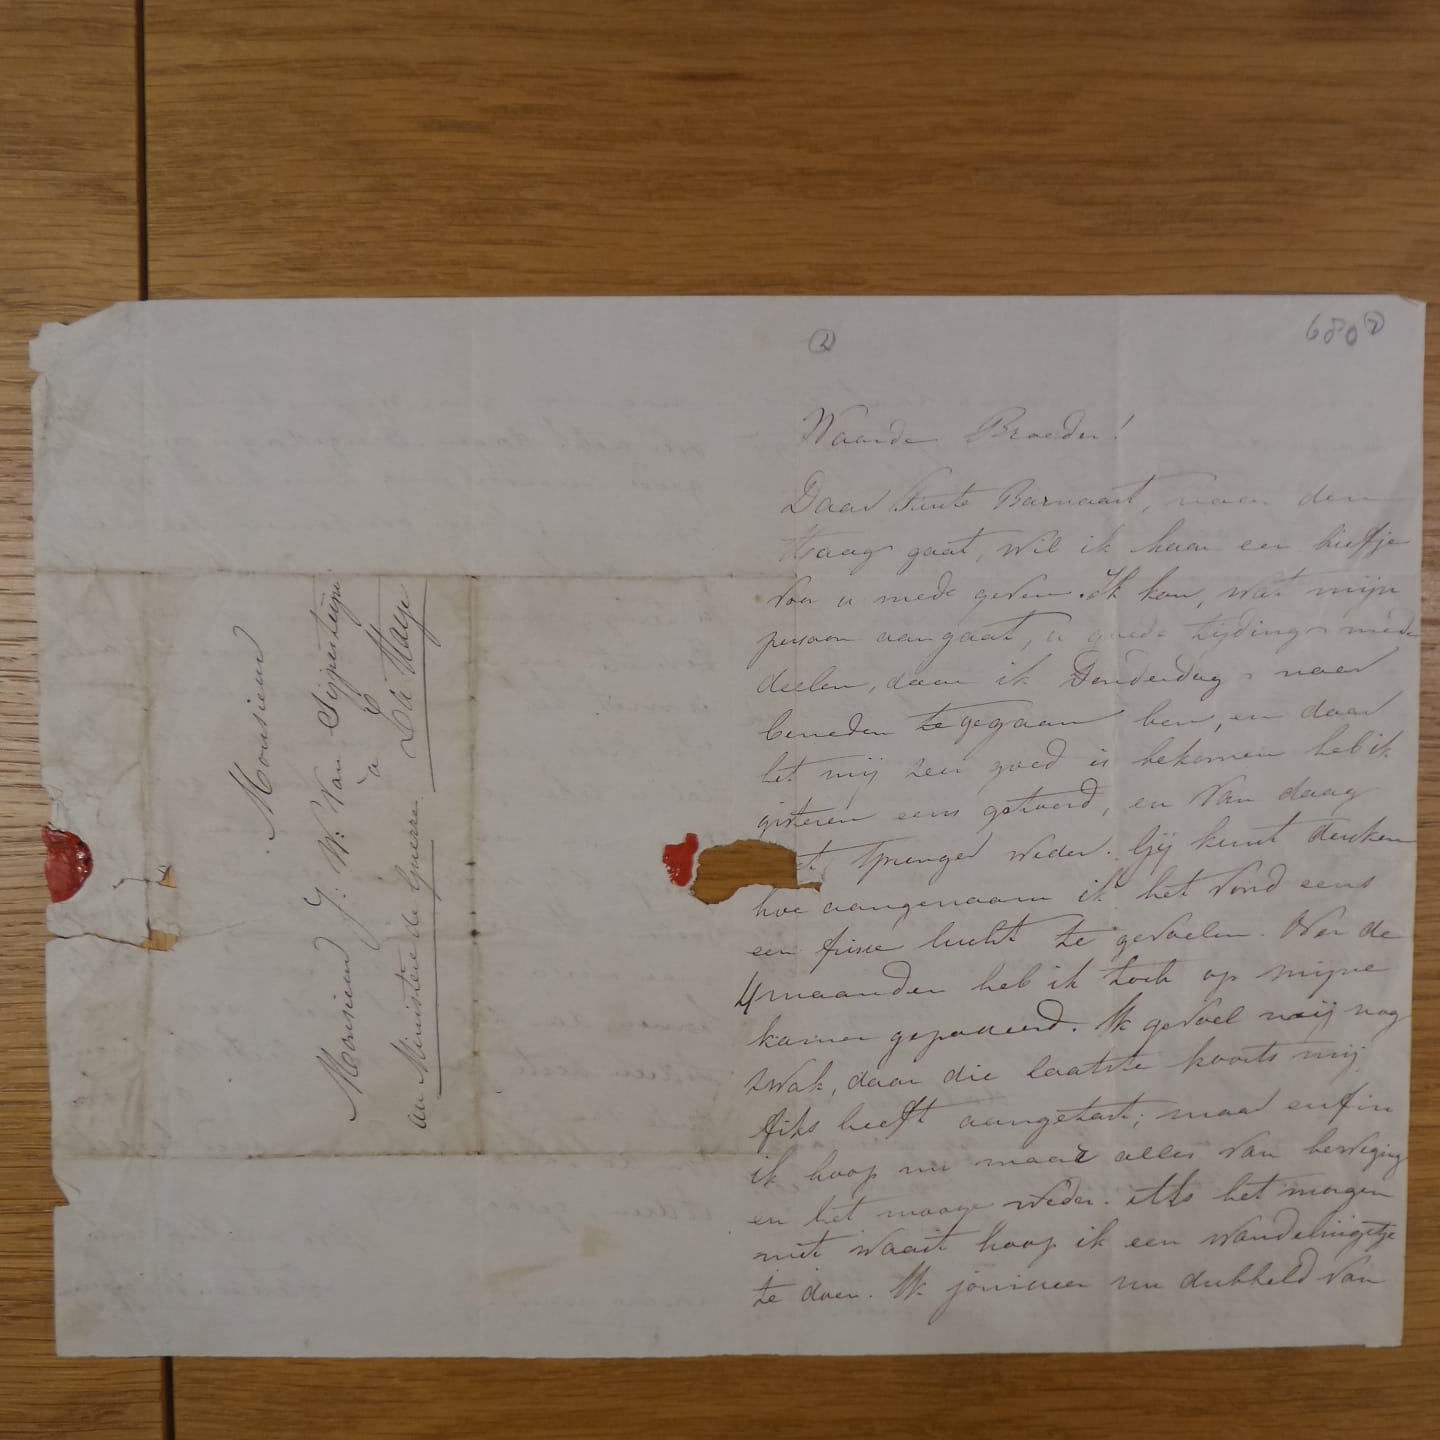 680 ②
②
Waarde Broeder!
Daar Tante Barnaart, naar den
Haag gaat, wil ik haar een briefje
voor u mede geven. Ik kan, wat mijn
persoon aangaat, u goede tijdings mede
deelen, daar ik Donderdag naar
beneden te gegaan ben, en daar
het mij zeer goed is bekomen heb ik
gisteren eens getoerd, en van daag
weder. Gij kunt denken
hoe aangenaam ik het vond eens
een frisse lucht te gevoelen. Over de
4 maanden heb ik toch op mijne
kamer gepasseerd. Ik gevoel mij nog
zwak, daar die laatste koorts mij
fiks heeft aangetast; maar enfin
ik hoop nu maar alles van beweging
en het mooye weder. Als het morgen
niet waait hoop ik een wandelingetje
te doen. Ik jouisseer nu dubbeld van
Monsieur
Monsieur J: W: Van Sypesteyn
à
au Ministère de Guerre. La Haye